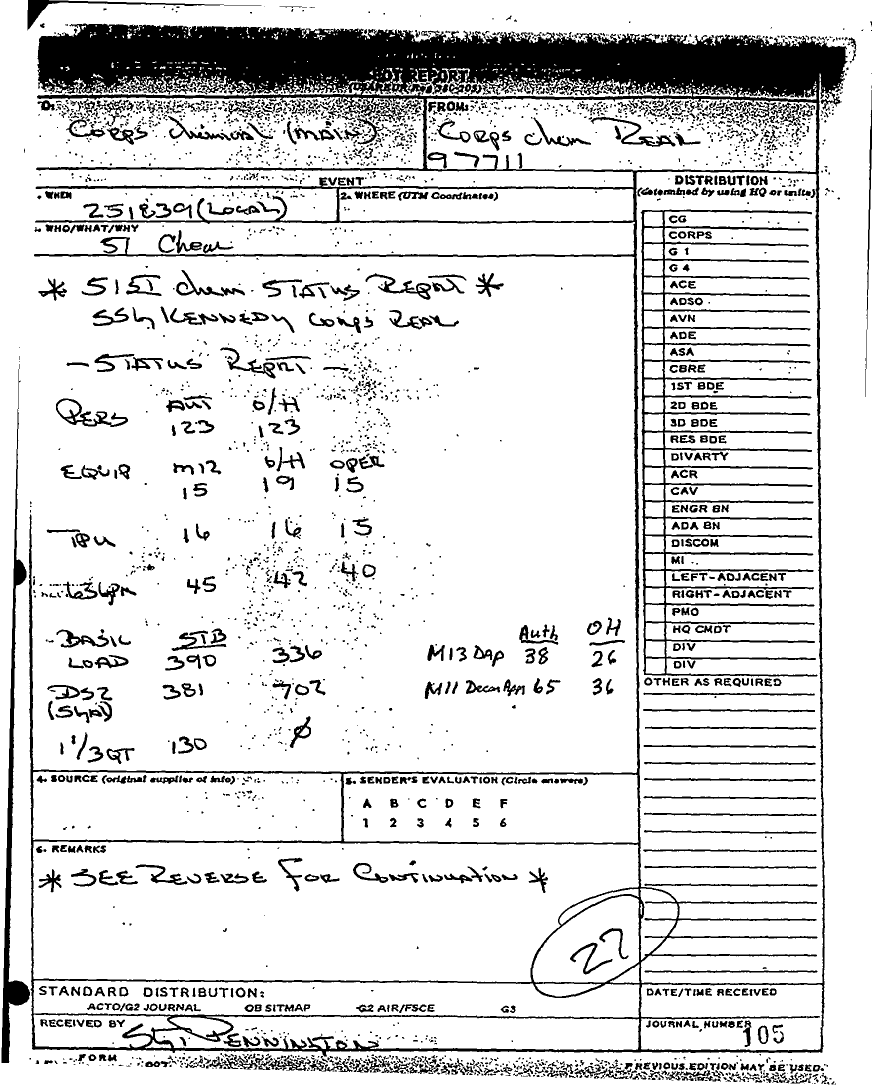 SPOT REPORT
(USAREUR Reg 380-305)
TO:
Corps Chemical (MAIN)
FROM:
Corps Chem REAR
97711
EVENT
1. WHEN
251839 (LOCAL)
2. WHERE (UTM Coordinates)
3. WHO/WHAT/WHY
51 Chem
* 51ST Chem STATUS REPORT *
SSG KENNEDY CORPS REAR
- STATUS REPORT -
AUT O/H
PERS 123 123
EQUIP M12 O/H OPER
15 19 15
TPU 16 16 15
65GPM 45 42 40
BASIC STB
LOAD 390 336
Auth OH
M13 DAP 38 26
DS2 381 702
(5GAL)
M11 Decon App 65 36
1 1/3 QT 130 Ø
4. SOURCE (original supplier of info)
5. SENDER'S EVALUATION (Circle answers)
A B C D E F
1 2 3 4 5 6
6. REMARKS
* SEE REVERSE FOR CONTINUATION *
27
STANDARD DISTRIBUTION:
ACTO/G2 JOURNAL OB SITMAP G2 AIR/FSCE G3
RECEIVED BY
SGT PENNINGTON
FORM
DISTRIBUTION
(determined by using HQ or units)
CG
CORPS
G 1
G 4
ACE
ADSO
AVN
ADE
ASA
CBRE
1ST BDE
2D BDE
3D BDE
RES BDE
DIVARTY
ACR
CAV
ENGR BN
ADA BN
DISCOM
MI
LEFT-ADJACENT
RIGHT-ADJACENT
PMO
HQ CMDT
DIV
DIV
OTHER AS REQUIRED
DATE/TIME RECEIVED
JOURNAL NUMBER
105
PREVIOUS EDITION MAY BE USED.